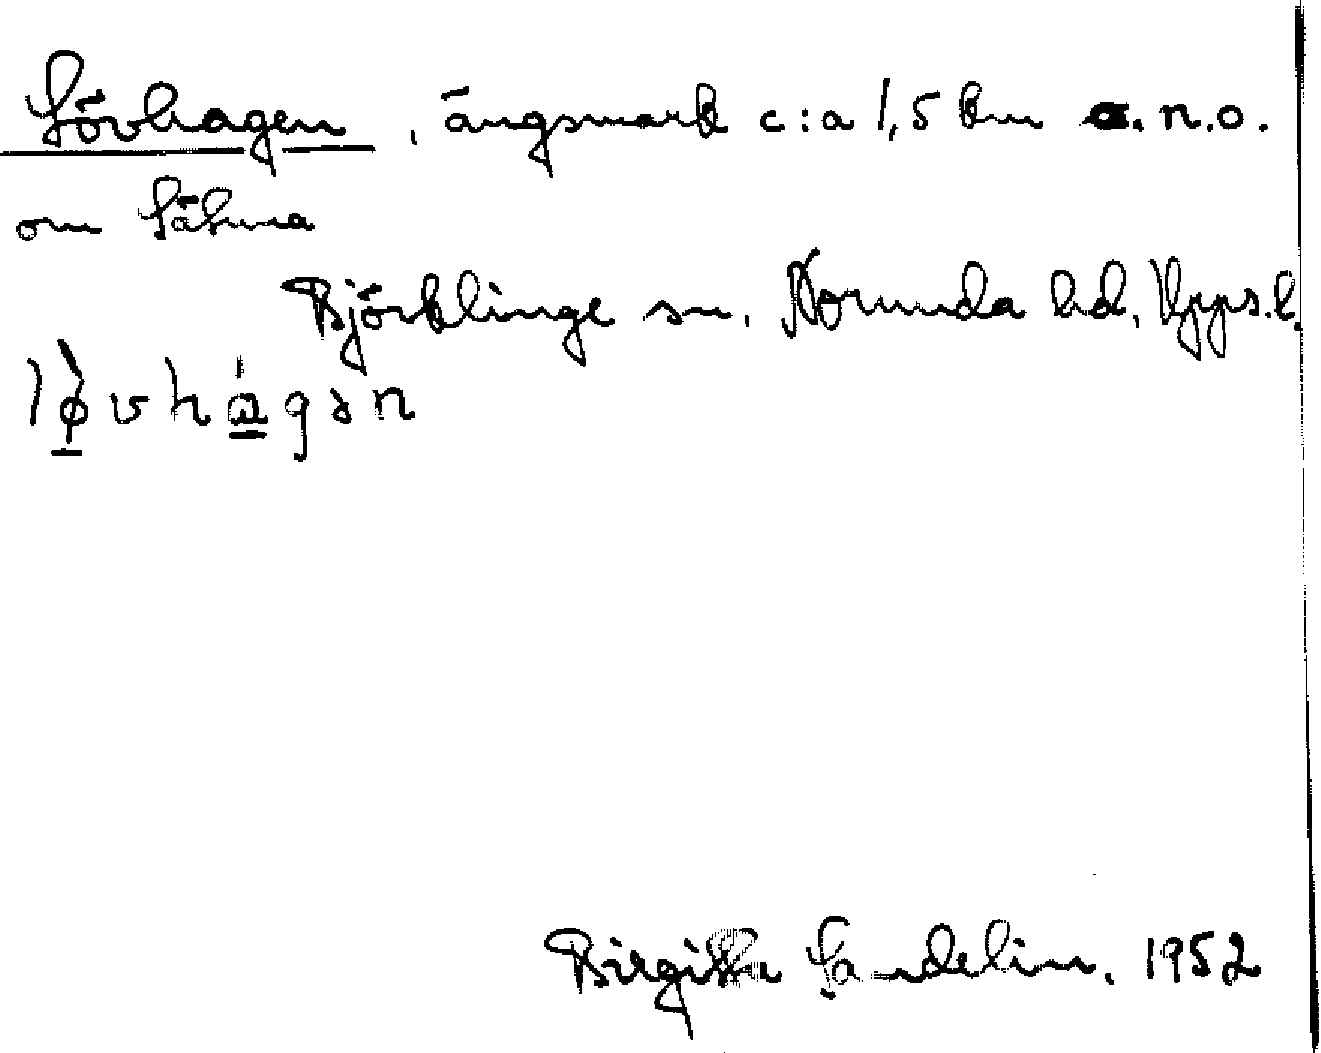 Lövhagen, ängsmark c:a 1,5 km n.o.
om Sätuna
Björklinge sn. Norunda hd. Upps.l.
lø̀vhágən
Birgitta Sandelin. 1952